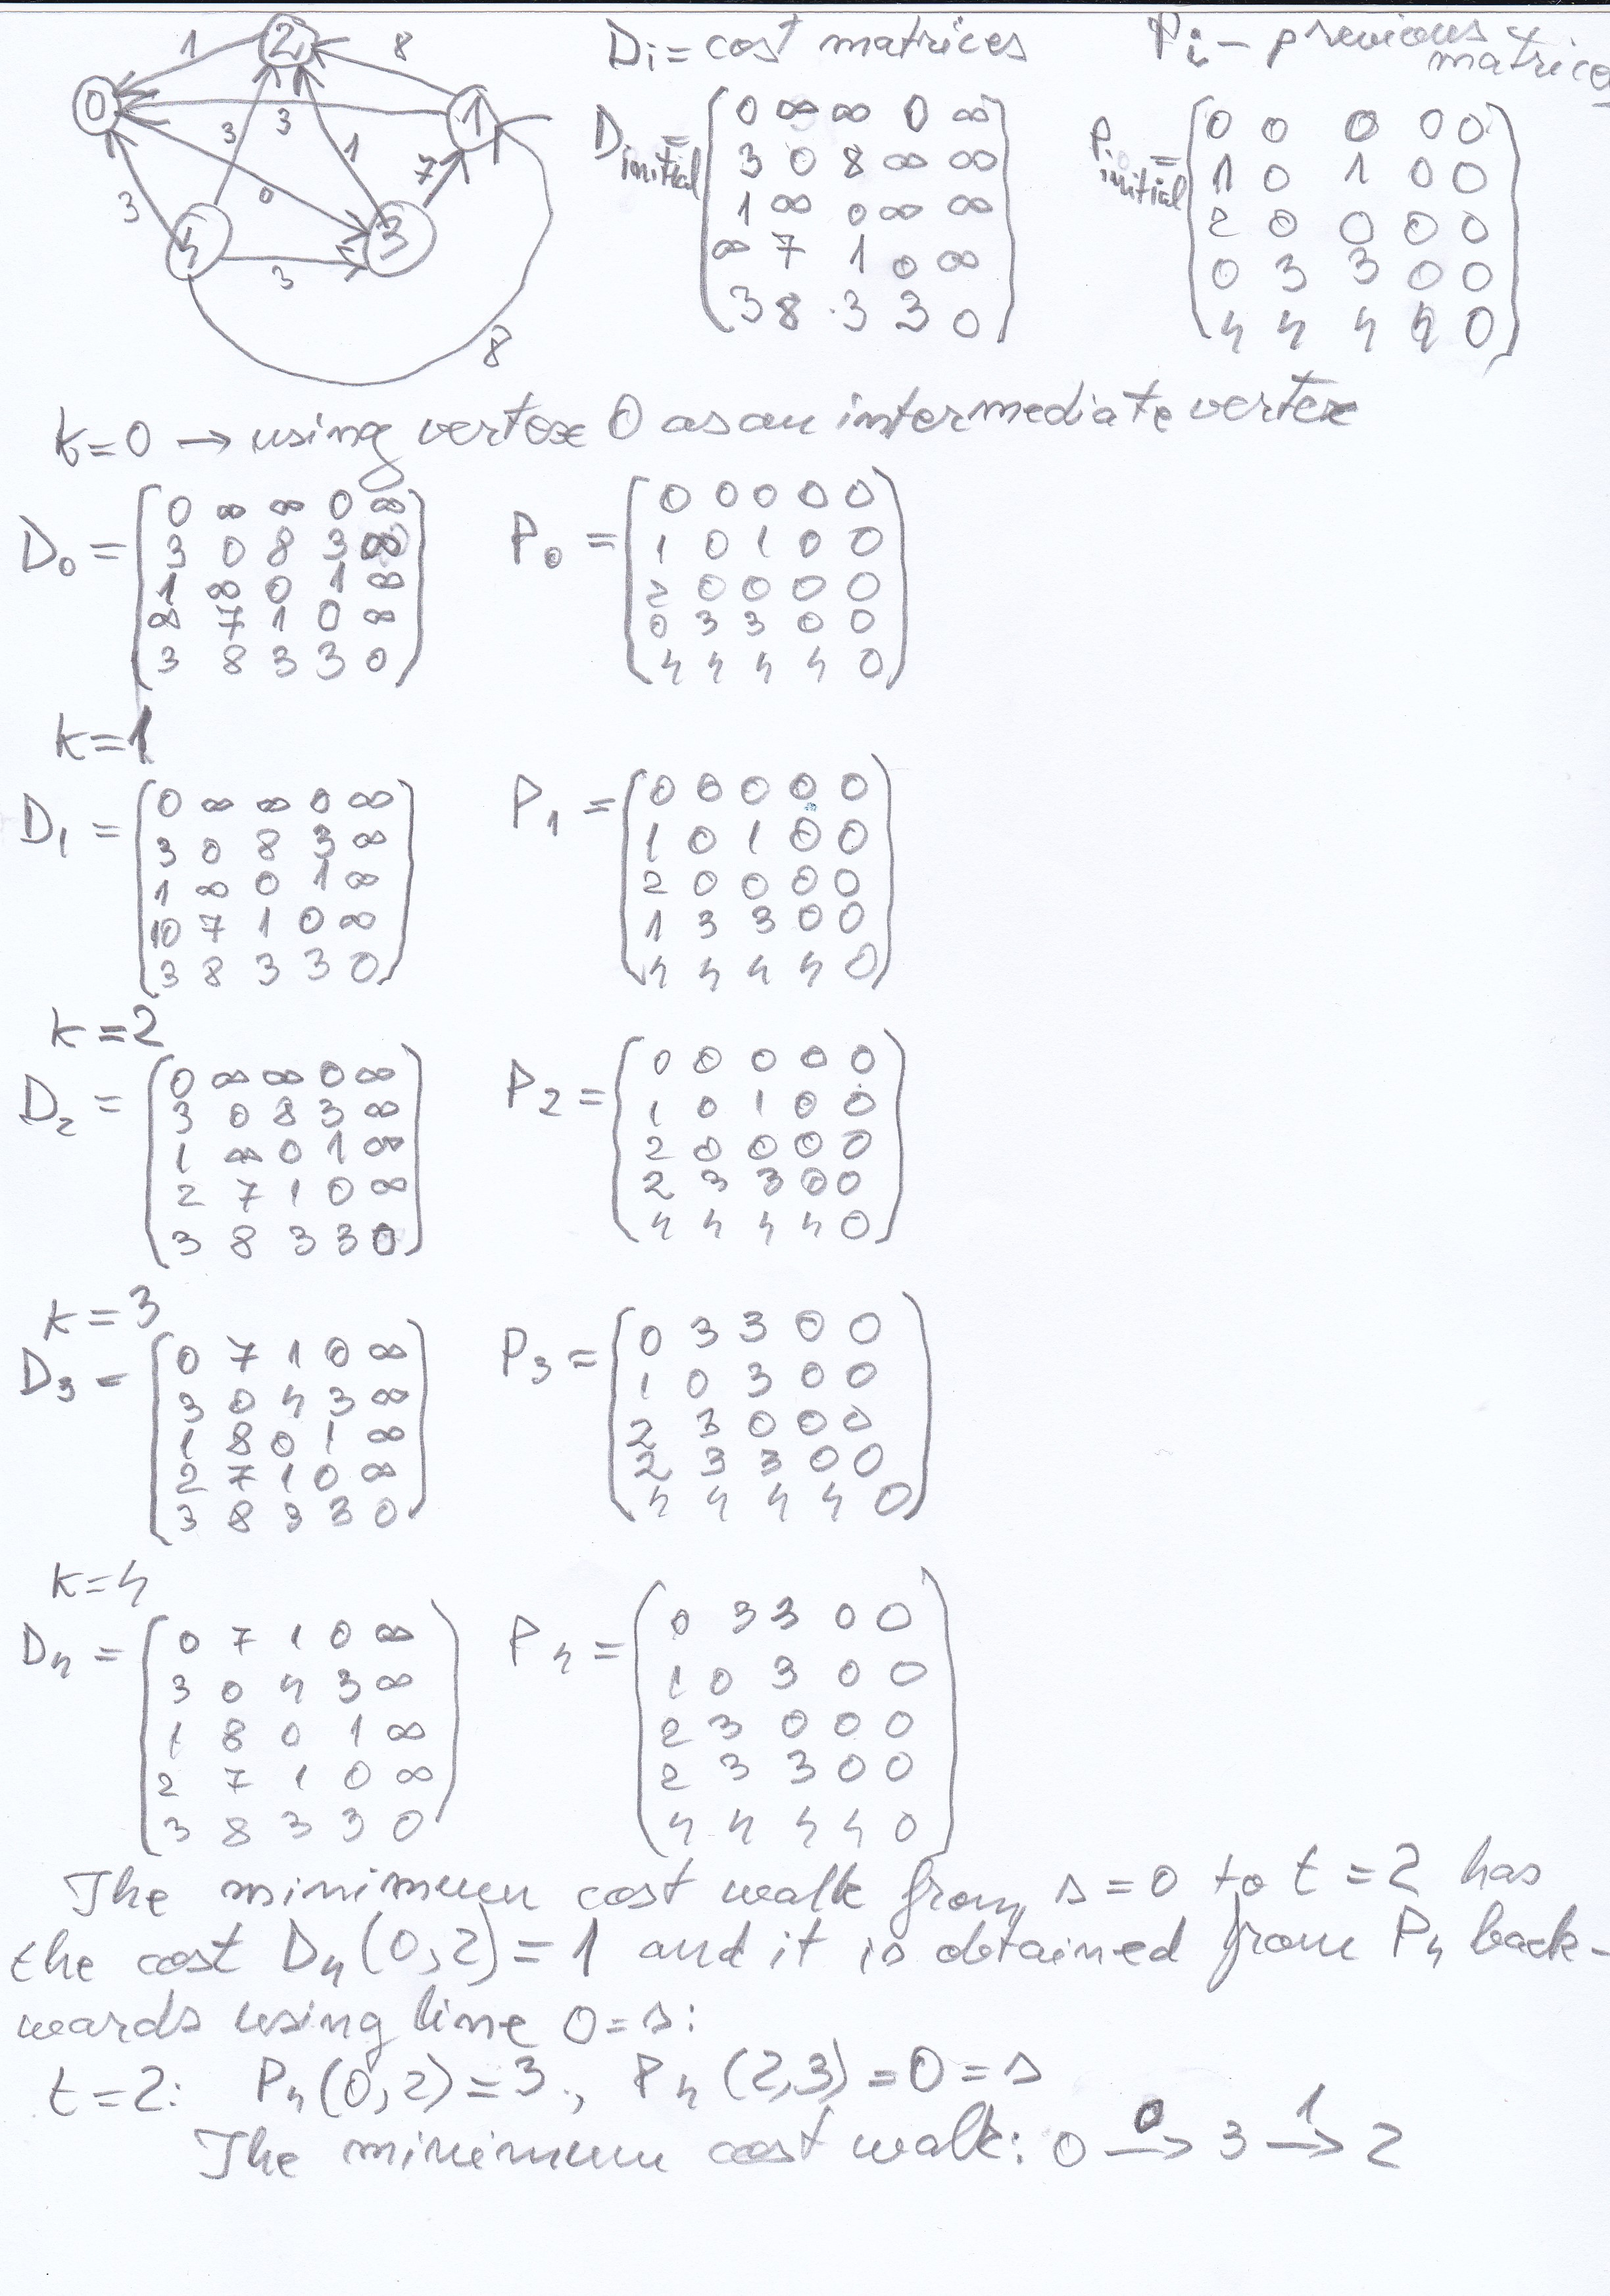 D_i = cost matrices
P_i – previous matrices
1 8 3 3 1 7 3 0 3 8
0 1 2 3 4
D_initial =
0 ∞ ∞ 0 ∞
3 0 8 ∞ ∞
1 ∞ 0 ∞ ∞
∞ 7 1 0 ∞
3 8 3 3 0
P_initial =
0 0 0 0 0
1 0 1 0 0
2 0 0 0 0
0 3 3 0 0
4 4 4 4 0
k=0 → using vertex 0 as an intermediate vertex
D_0 =
0 ∞ ∞ 0 ∞
3 0 8 3 ∞
1 ∞ 0 1 ∞
∞ 7 1 0 ∞
3 8 3 3 0
P_0 =
0 0 0 0 0
1 0 1 0 0
2 0 0 0 0
0 3 3 0 0
4 4 4 4 0
k=1
D_1 =
0 ∞ ∞ 0 ∞
3 0 8 3 ∞
1 ∞ 0 1 ∞
10 7 1 0 ∞
3 8 3 3 0
P_1 =
0 0 0 0 0
1 0 1 0 0
2 0 0 0 0
1 3 3 0 0
4 4 4 4 0
k=2
D_2 =
0 ∞ ∞ 0 ∞
3 0 8 3 ∞
1 ∞ 0 1 ∞
2 7 1 0 ∞
3 8 3 3 0
P_2 =
0 0 0 0 0
1 0 1 0 0
2 0 0 0 0
2 3 3 0 0
4 4 4 4 0
k=3
D_3 =
0 7 1 0 ∞
3 0 4 3 ∞
1 8 0 1 ∞
2 7 1 0 ∞
3 8 3 3 0
P_3 =
0 3 3 0 0
1 0 3 0 0
2 3 0 0 0
2 3 3 0 0
4 4 4 4 0
k=4
D_4 =
0 7 1 0 ∞
3 0 4 3 ∞
1 8 0 1 ∞
2 7 1 0 ∞
3 8 3 3 0
P_4 =
0 3 3 0 0
1 0 3 0 0
2 3 0 0 0
2 3 3 0 0
4 4 4 4 0
The minimum cost walk from s=0 to t=2 has
the cost D_4(0,2)=1 and it is obtained from P_4 back-
wards using line 0=s:
t=2: P_4(0,2)=3, P_4(2,3)=0=s
The minimum cost walk: 0 –0→ 3 –1→ 2